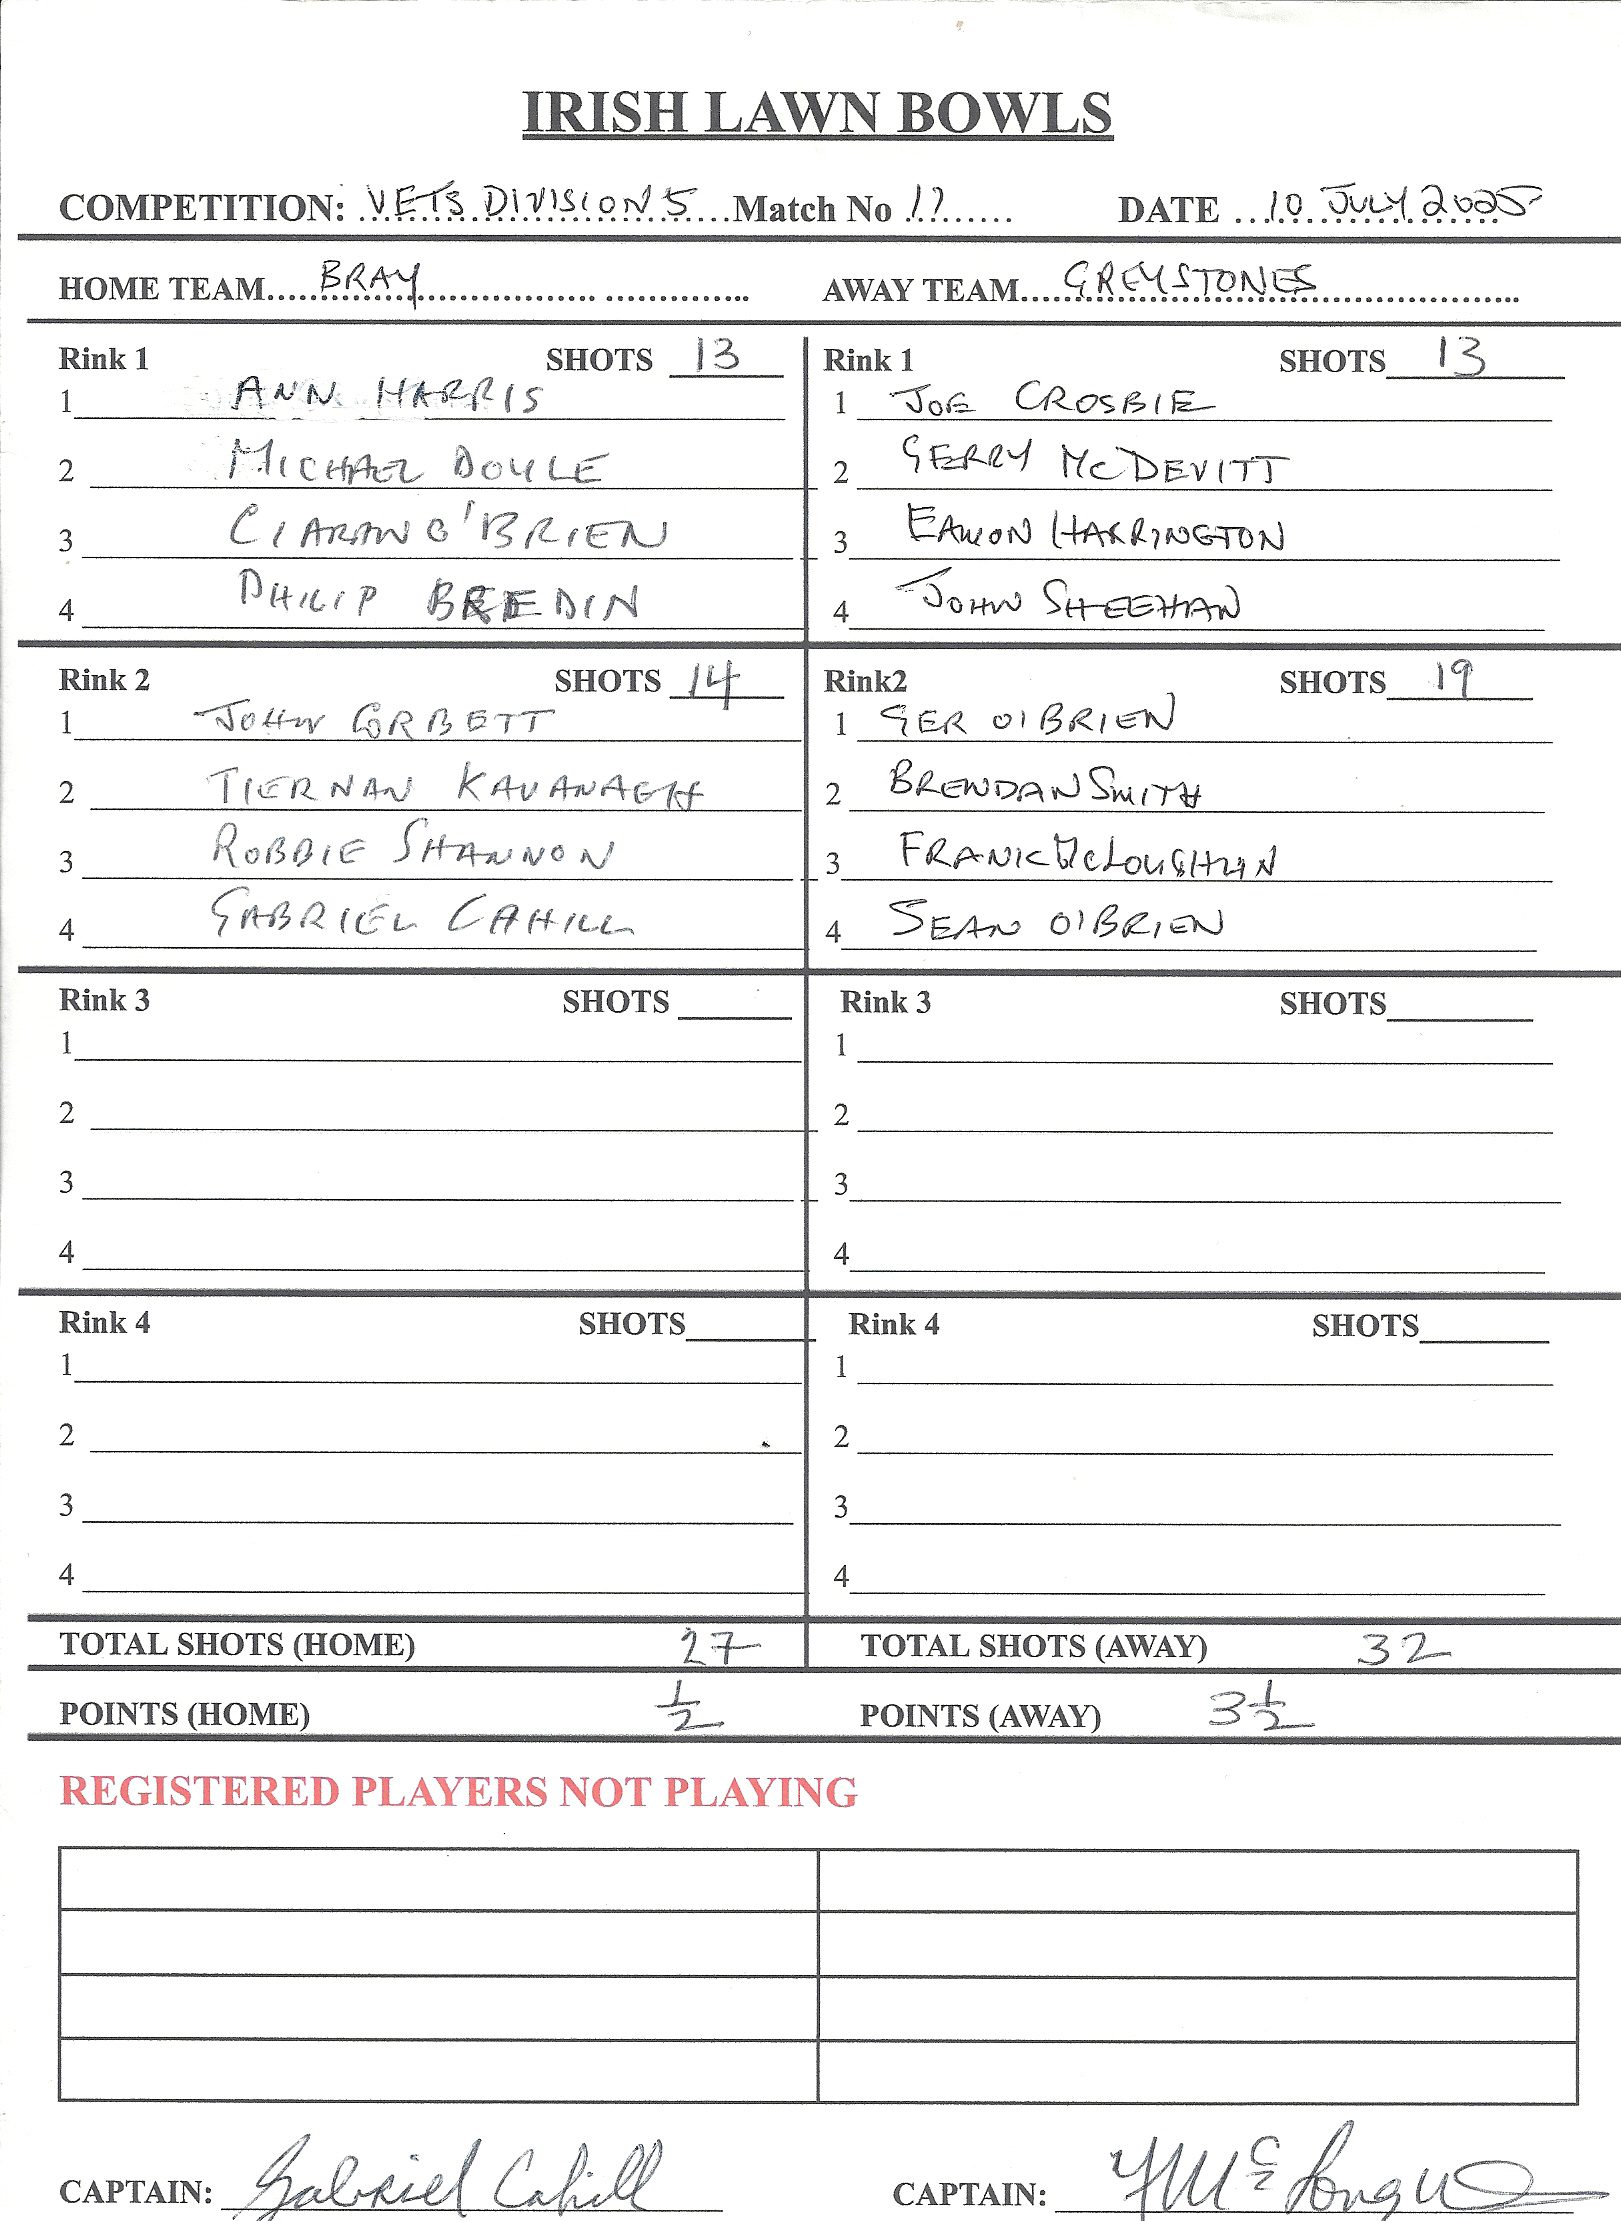 IRISH LAWN BOWLS
COMPETITION: VETS DIVISION 5 Match No 17 DATE 10 JULY 2025
HOME TEAM BRAY AWAY TEAM GREYSTONES
Rink 1 SHOTS 13 Rink 1 SHOTS 13
1 ANN HARRIS 1 JOE CROSBIE
2 MICHAEL DOYLE 2 GERRY MCDEVITT
3 CIARAN O'BRIEN 3 EAMON HARRINGTON
4 PHILIP BREDIN 4 JOHN SHEEHAN
Rink 2 SHOTS 14 Rink2 SHOTS 19
1 JOHN CORBETT 1 GER O'BRIEN
2 TIERNAN KAVANAGH 2 BRENDAN SMITH
3 ROBBIE SHANNON 3 FRANK MCLOUGHLIN
4 GABRIEL CAHILL 4 SEAN O'BRIEN
Rink 3 SHOTS Rink 3 SHOTS
1 1
2 2
3 3
4 4
Rink 4 SHOTS Rink 4 SHOTS
1 1
2 2
3 3
4 4
TOTAL SHOTS (HOME) 27 TOTAL SHOTS (AWAY) 32
POINTS (HOME) 1/2 POINTS (AWAY) 3 1/2
REGISTERED PLAYERS NOT PLAYING
CAPTAIN: Gabriel Cahill CAPTAIN: